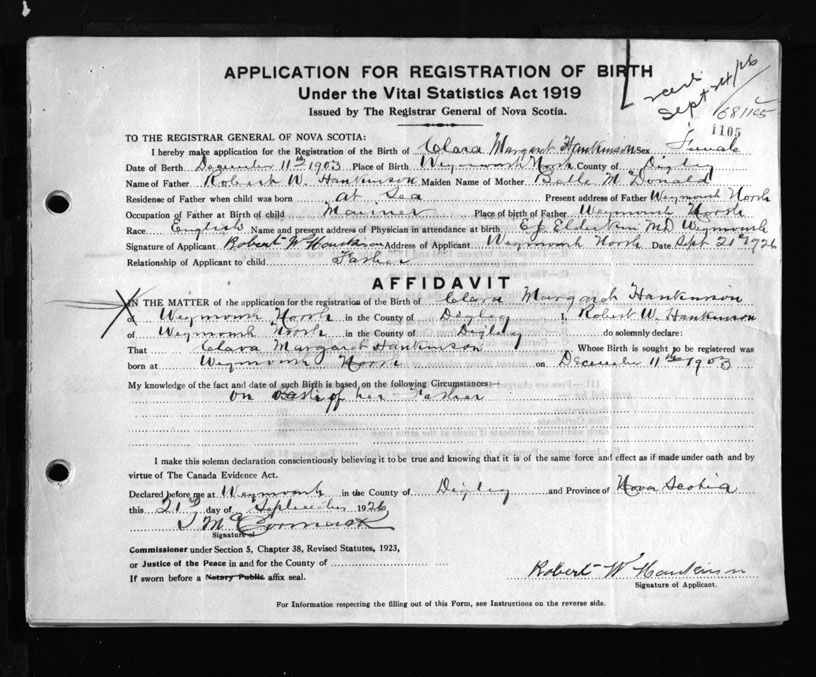 APPLICATION FOR REGISTRATION OF BIRTH
Under the Vital Statistics Act 1919
Issued by The Registrar General of Nova Scotia.
Sept 24/26
1105
TO THE REGISTRAR GENERAL OF NOVA SCOTIA:
I hereby make application for the Registration of the Birth of Clara Margaret Hankinson Sex Female
Date of Berth December 11th 1903 Place of Birth Weymouth North County of Digby
Name of Father Robert W. Hankinson Maiden Name of Mother Belle McDonald
Residense of Father when child was born at Sea Present address of Father Weymouth North
Occupation of Father at Birth of child Mariner Place of birth of Father Weymouth North
Race English Name and present address of Physician in attendance at birth Elderkin MD Weymouth
Signature of Applicant Robert W Hankinson Address of Applicant Weymouth North Date Sept 21st 1926
Relationship of Applicant to child Father
AFFIDAVIT
IN THE MATTER of the application for the registration of the Birth of Clara Margaret Hankinson
of Weymouth North in the County of Digby I, Robert W. Hankinson
of Weymouth North in the County of Digby do solemnly declare:
That Clara Margaret Hankinson Whose Birth is sought to be registered was
born at Weymouth North on December 11th 1903
My knowledge of the fact and date of such Birth is based on the following Circumstances:—
on oath of her Father
I make this solemn declaration conscientiously believing it to be true and knowing that it is of the same force and effect as if made under oath and by
virtue of The Canada Evidence Act.
Declared before me at Weymouth in the County of Digby and Province of Nova Scotia
this 21st day of September 1926
McCormack
Signature of
Commissioner under Section 5, Chapter 38, Revised Statutes, 1923,
or Justice of the Peace in and for the County of
If sworn before a Notary Public affix seal.
Robert W Hankinson
Signature of Applicant.
For Information respecting the filling out of this Form, see Instructions on the reverse side.